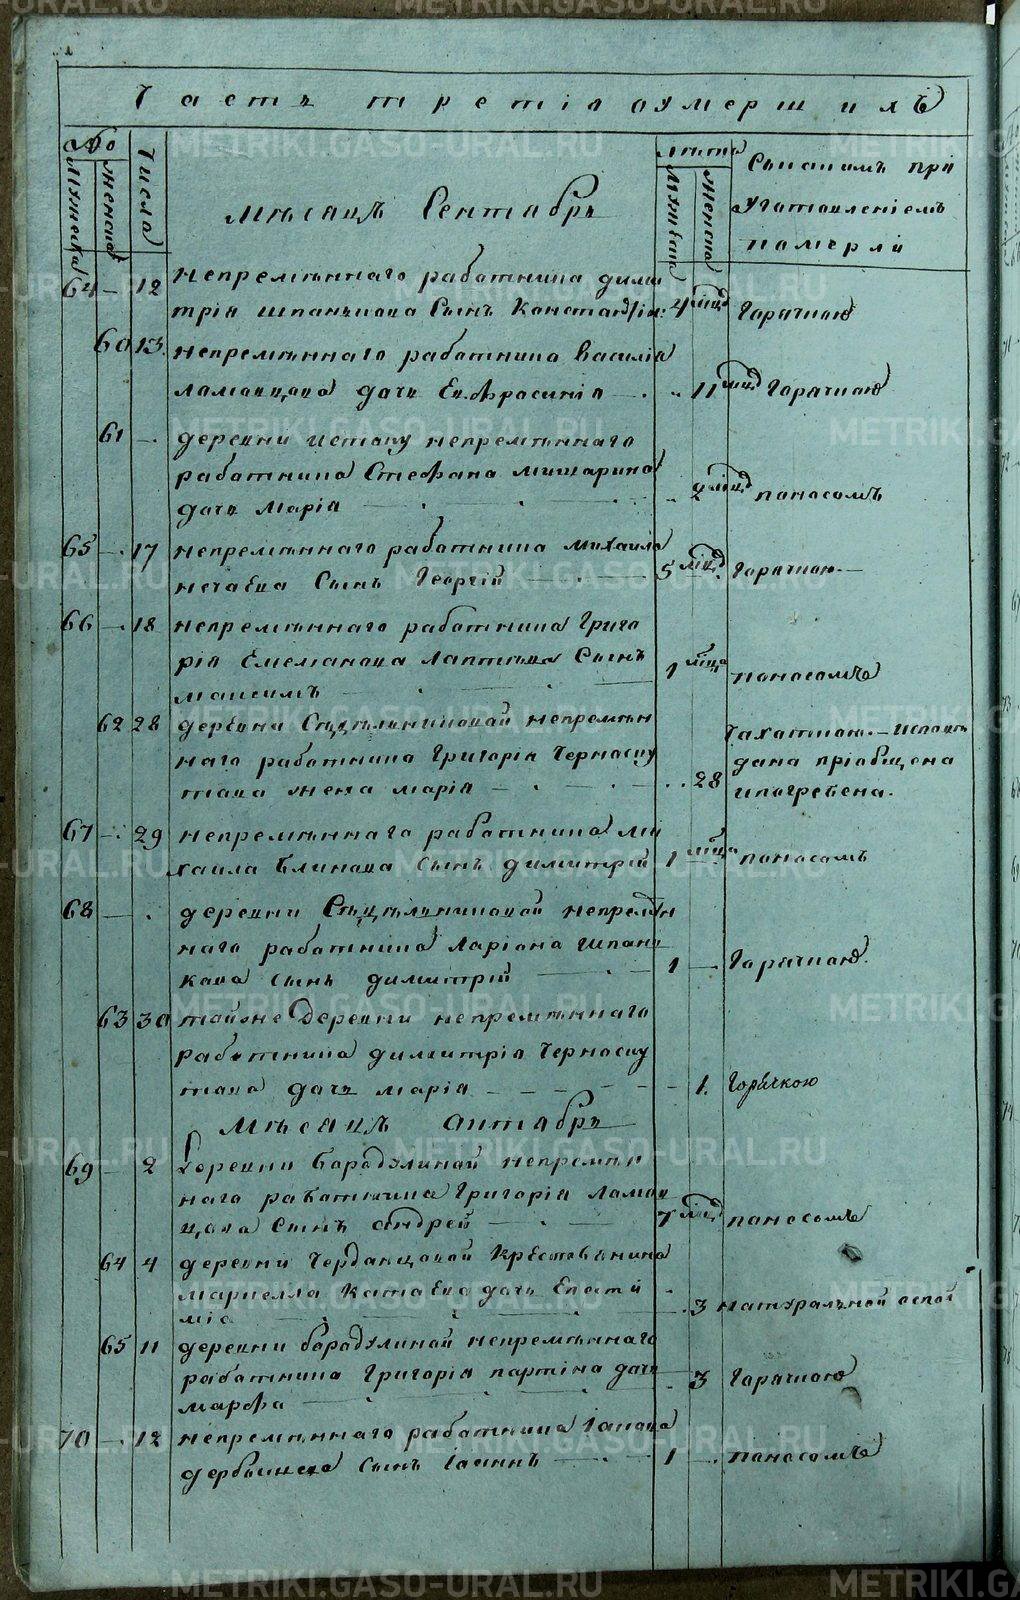 Часть третія оумершихъ
№ Числа Лѣта
Мужеска Женска Мужеска Женска
Съкакимъ при
Уготовленіемъ
померли
Мѣсяцъ Сентябрь
64 — 12 непремѣннаго работника Дими
трія Шпанькова Сынъ Константін: 4 мѣцъ Горячкою
60 13. непремѣннаго работника Василія
Ламовцова дочь Евфросинія — 11 мѣцъ Горячкою
61 — деревни Истоку непремѣннаго
работника Стефана Мишарина
дочь Марія — 2 мѣцъ поносомъ
65 — 17 непремѣннаго работника Михаила
Нечаева Сынъ Георгій — 5 мѣцъ Горячкою
66 — 18 непремѣннаго работника Григо
рія Емельянова Лаптева Сынъ
Максимъ — 1 мѣца поносомъ
62 28 деревни непремѣн
наго работника Григорія Черноску
това жена Марія — 28 Чахоткою — Исповѣ
дана пріобщена
ипогребена.
67 — 29 непремѣннаго работника Ми
хаила Блинова Сынъ Димитрій 1 мѣца поносомъ
68 — деревни непремѣн
наго работника Ларіона Шпань
кова сынъ Димитрій — 1 — Горячкою.
63 30 тойже деревни непремѣннаго
работника Димитрія Черноску
това дочь Марія — 1. Горячкою
Мѣсяцъ Октябрь
69 — 2 Деревни Бородулиной непремѣн
наго работника Григорія Ламов
цова Сынъ Андрей — 7 мѣцъ поносомъ
64 4 деревни Черданцовой Крестьянина
Маркелла Катаева дочь Епести
міа — 3 натуральной оспой
65 11 деревни Бородулиной непремѣннаго
работника Григорія Партина дочь
Марѳа — 3 Горячкою
70 — 12 непремѣннаго работника Іакова
Сынъ Іоаннъ — 1 — поносомъ
METRIKI.GASO-URAL.RU